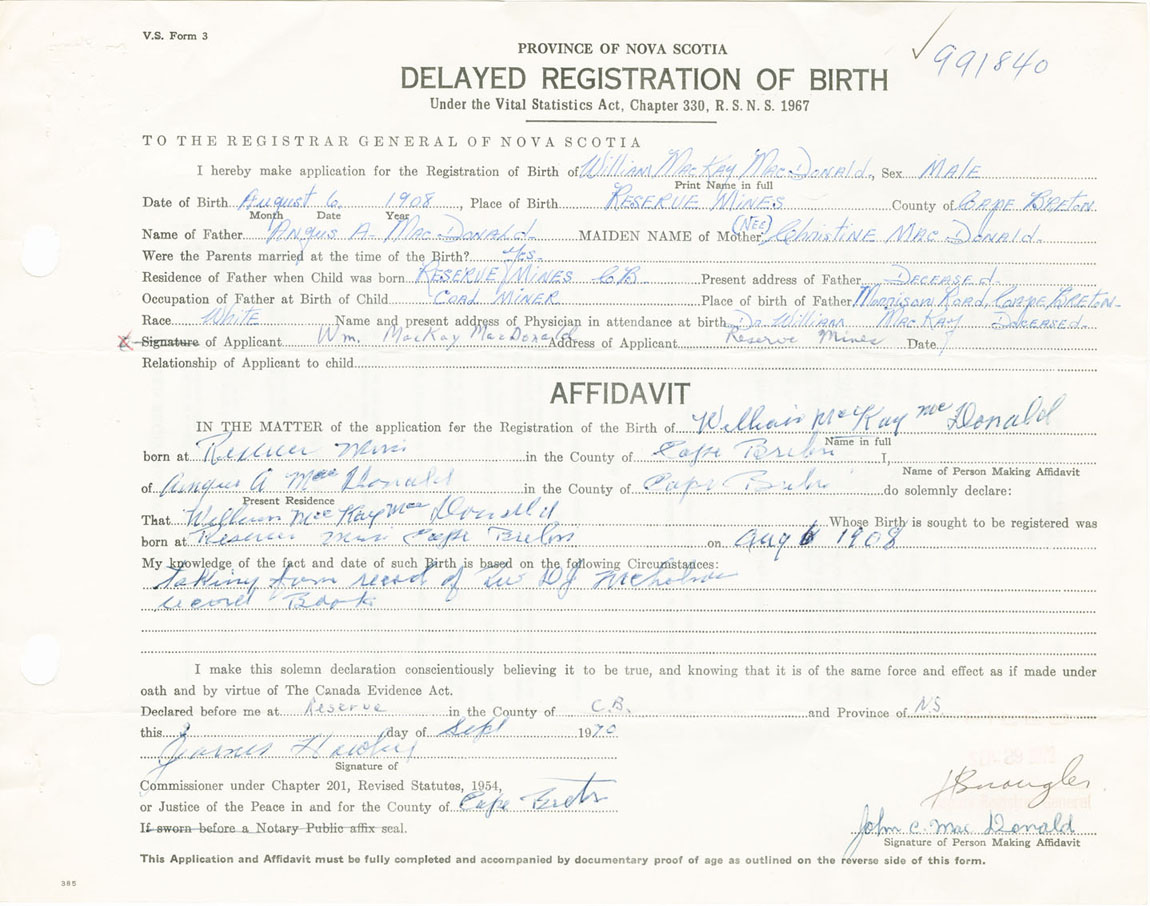 V.S. Form 3
991840
PROVINCE OF NOVA SCOTIA
DELAYED REGISTRATION OF BIRTH
Under the Vital Statistics Act, Chapter 330, R. S. N. S. 1967
TO THE REGISTRAR GENERAL OF NOVA SCOTIA
I hereby make application for the Registration of Birth of William MacKay MacDonald, Sex MALE
Print Name in full
Date of Birth August 6. 1908, Place of Birth RESERVE MINES County of Cape Breton.
Month Date Year
Name of Father Angus A. MacDonald MAIDEN NAME of Mother (NEE) Christine MacDonald.
Were the Parents married at the time of the Birth? Yes.
Residence of Father when Child was born RESERVE MINES C.B. Present address of Father DECEASED.
Occupation of Father at Birth of Child COAL MINER Place of birth of Father Morrison Road, Cape Breton
Race White Name and present address of Physician in attendance at birth Dr. William MacKay Deceased.
X Signature of Applicant Wm. MacKay MacDonald Address of Applicant Reserve Mines Date
Relationship of Applicant to child
AFFIDAVIT
IN THE MATTER of the application for the Registration of the Birth of William MacKay McDonald
Name in full
born at Reserve Mines in the County of Cape Breton I,
Name of Person Making Affidavit
of Angus A MacDonald in the County of Cape Breton do solemnly declare:
Present Residence
That William MacKay MacDonald Whose Birth is sought to be registered was
born at Reserve Mines Cape Breton on Aug 6 1908
My knowledge of the fact and date of such Birth is based on the following Circumstances:
taking from record of DJ Nicholson
record Book
I make this solemn declaration conscientiously believing it to be true, and knowing that it is of the same force and effect as if made under
oath and by virtue of The Canada Evidence Act.
Declared before me at Reserve in the County of C.B. and Province of N.S.
this day of Sept 1970
James
Signature of
Commissioner under Chapter 201, Revised Statutes, 1954,
or Justice of the Peace in and for the County of Cape Breton
If sworn before a Notary Public affix seal.
John C. MacDonald
Signature of Person Making Affidavit
This Application and Affidavit must be fully completed and accompanied by documentary proof of age as outlined on the reverse side of this form.
385